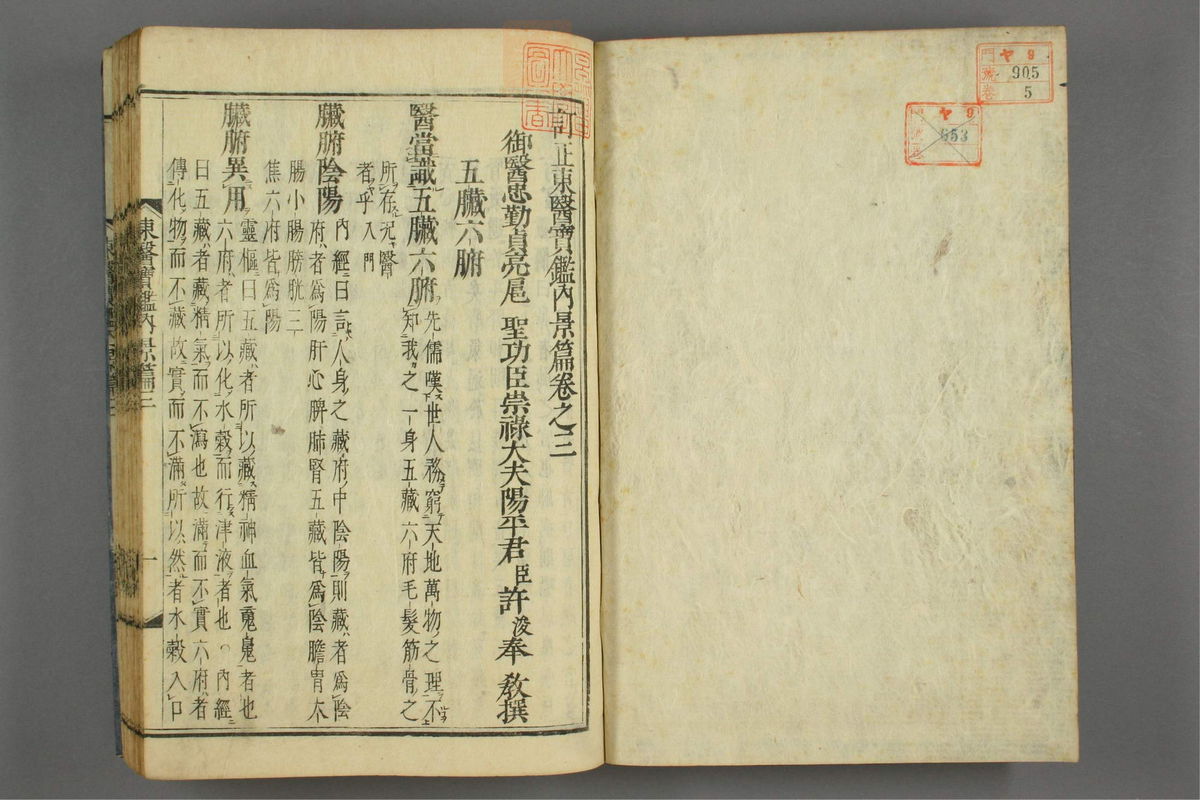 訂正東醫寶鑑內景篇卷之三
御醫忠勤貞亮扈 聖功臣崇祿大夫陽平君臣許浚奉 敎撰
五臟六腑
醫當識五臟六腑 先儒嘆世人務窮天地萬物之理不
知我之一身五藏六府毛髮筋骨之
所存況醫
者乎入門
臟腑陰陽 內經曰言人身之藏府中陰陽則藏者爲陰
府者爲陽肝心脾肺腎五藏皆爲陰膽胃大
腸小腸膀胱三
焦六府皆爲陽
臟腑異用 靈樞曰五藏者所以藏精神血氣魂魄者也
六府者所以化水穀而行津液者也○內經
曰五藏者藏精氣而不瀉也故滿而不實六府者
傳化物而不藏故實而不滿所以然者水穀入口
東醫寶鑑內景篇三
一
ヤ9
905
5
ヤ9
653